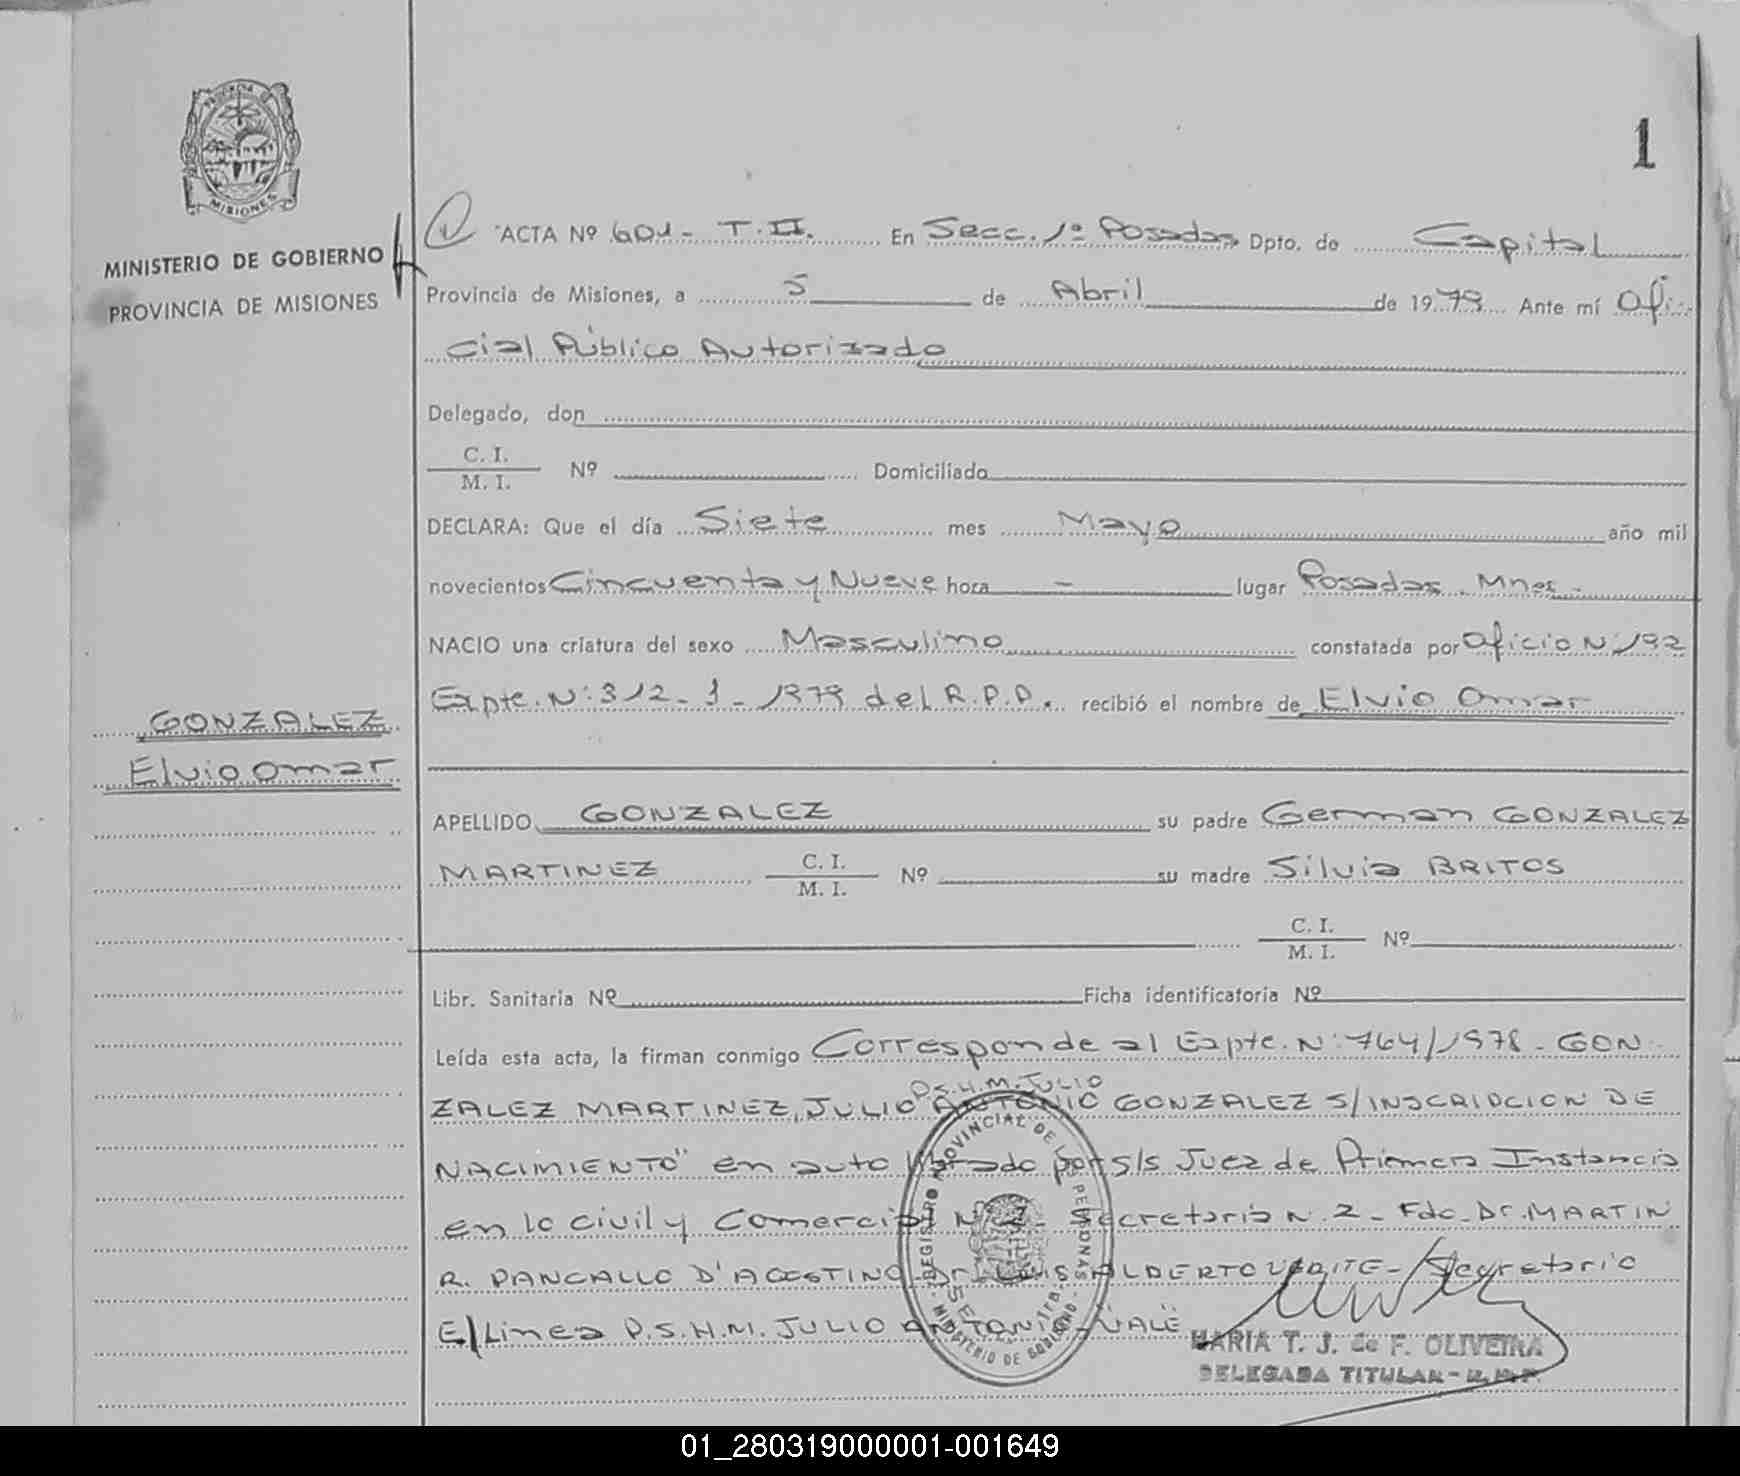 1
PROVINCIA DE
MISIONES
MINISTERIO DE GOBIERNO
PROVINCIA DE MISIONES
1 ACTA Nº 601- T.II. En Secc. 1º Posadas Dpto. de Capital
Provincia de Misiones, a 5 de Abril de 1979 Ante mí Ofi-
cial Público Autorizado
Delegado, don
C. I.
M. I. Nº Domiciliado
DECLARA: Que el día Siete mes Mayo año mil
novecientos Cincuenta y Nueve hora - lugar Posadas. Mnes-
NACIO una criatura del sexo Masculino constatada por Oficio Nº 192
Expte. Nº 312-J-1979 del R.P.P. recibió el nombre de Elvio Omar
GONZALEZ
Elvio Omar
APELLIDO GONZALEZ su padre German GONZALEZ
MARTINEZ C. I. M. I. Nº su madre Silvia BRITOS
C. I.
M. I. Nº
Libr. Sanitaria Nº Ficha identificatoria Nº
Leída esta acta, la firman conmigo Corresponde al Expte. Nº 764/1978- GON-
P.S.H.M. JULIO
ZALEZ MARTINEZ, JULIO ANTONIO GONZALEZ S/INSCRIPCION DE
NACIMIENTO" en auto librado por S/S Juez de Primera Instancia
en lo civil y Comercial Nº 2- Secretaria N. 2- Fdo. Dr. MARTIN
R. PANCALLO D'AGOSTINO Dr. LUIS ALBERTO URITE- Secretario
E/Linea P.S.H.M. JULIO ANTONIO - VALE
REGISTRO PROVINCIAL DE LAS PERSONAS
MINISTERIO DE GOBIERNO
MARIA T. J. de F. OLIVEIRA
DELEGADA TITULAR - R. P. P.
01_280319000001-001649